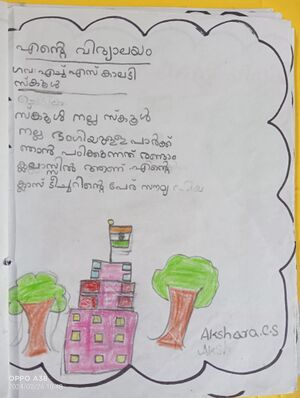 എന്റെ വിദ്യാലയം
ഗവ: എച്ച് എസ് കാലടി
സ്കൂൾ
സ്കൂൾ നല്ല സ്കൂൾ
നല്ല ഭംഗിയുള്ള പാർക്ക്
ഞാൻ പഠിക്കുന്നത് രണ്ടാം
ക്ലാസ്സിൽ ആണ് എന്റെ
ക്ലാസ് ടീച്ചറിന്റെ പേര് സൗമ്യ
Akshara.C.S
OPPO A38
2024/02/24 10:48